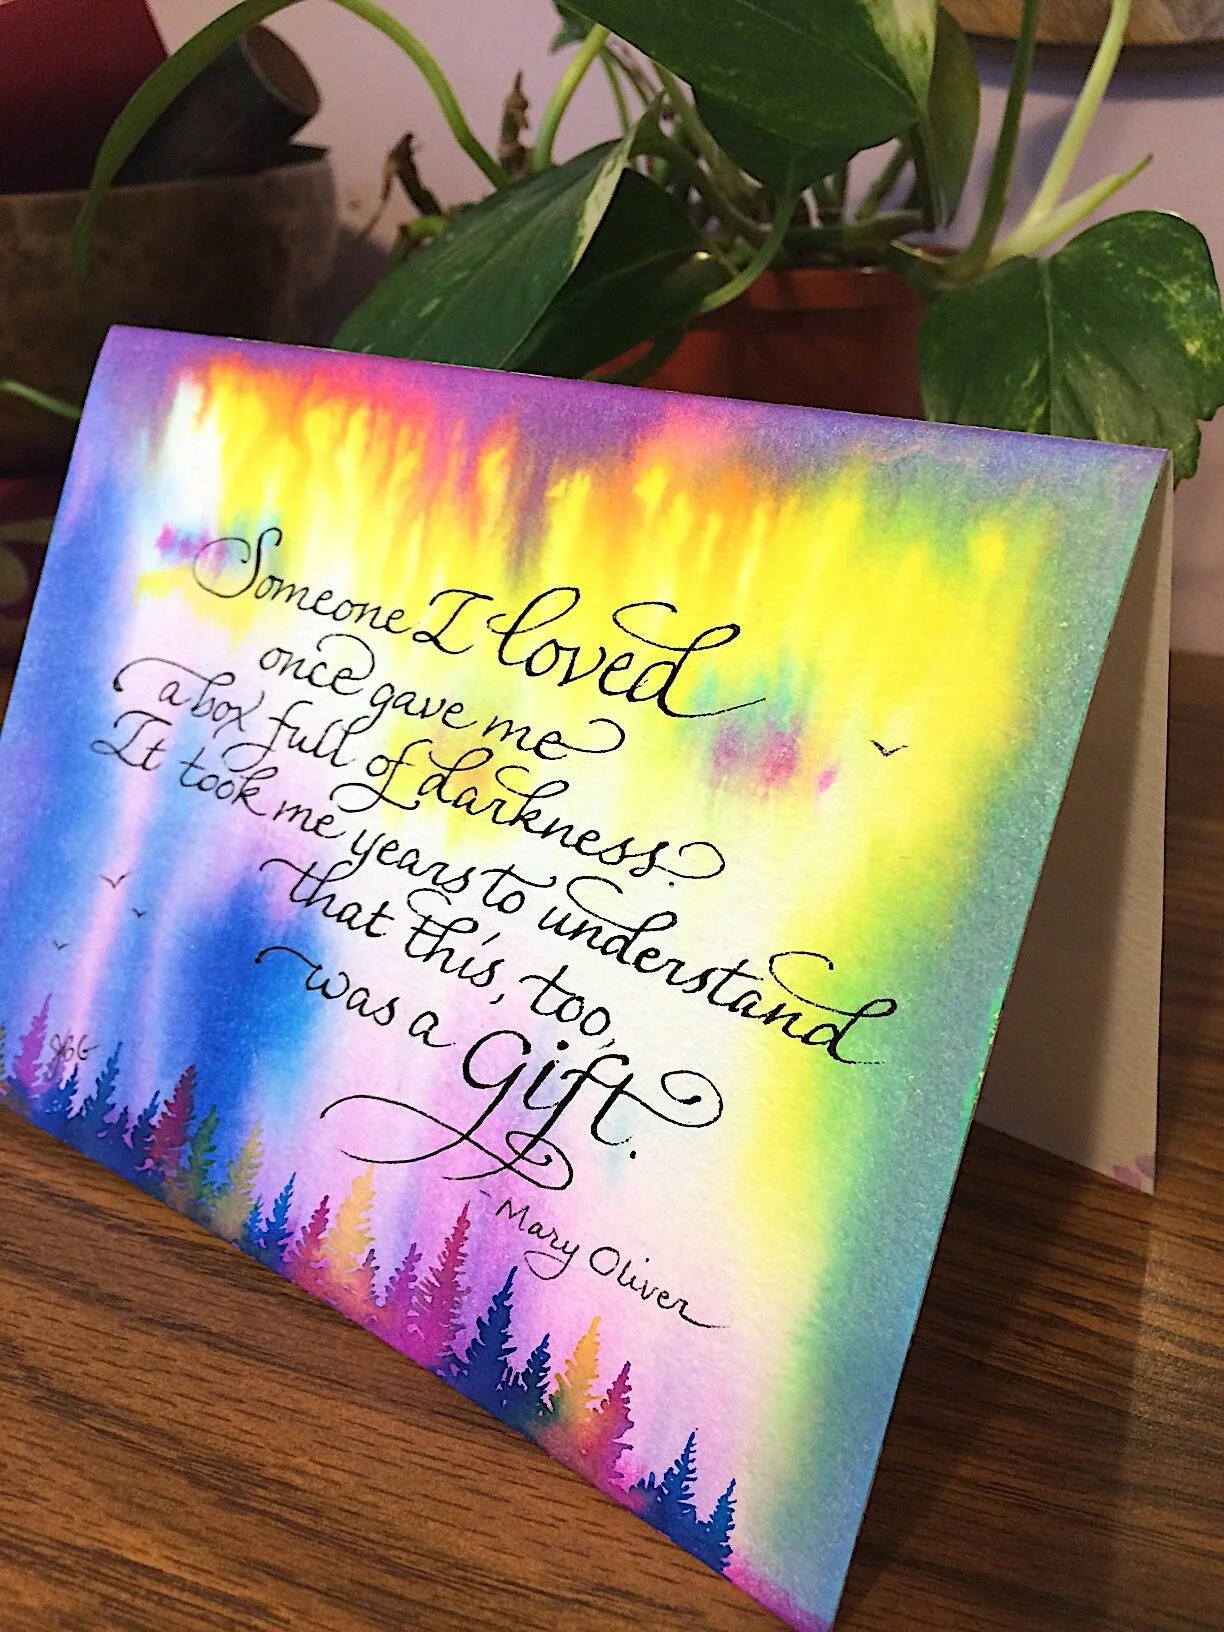 Someone I loved
once gave me
a box full of darkness.
It took me years to understand
that this, too,
was a Gift.
- Mary Oliver